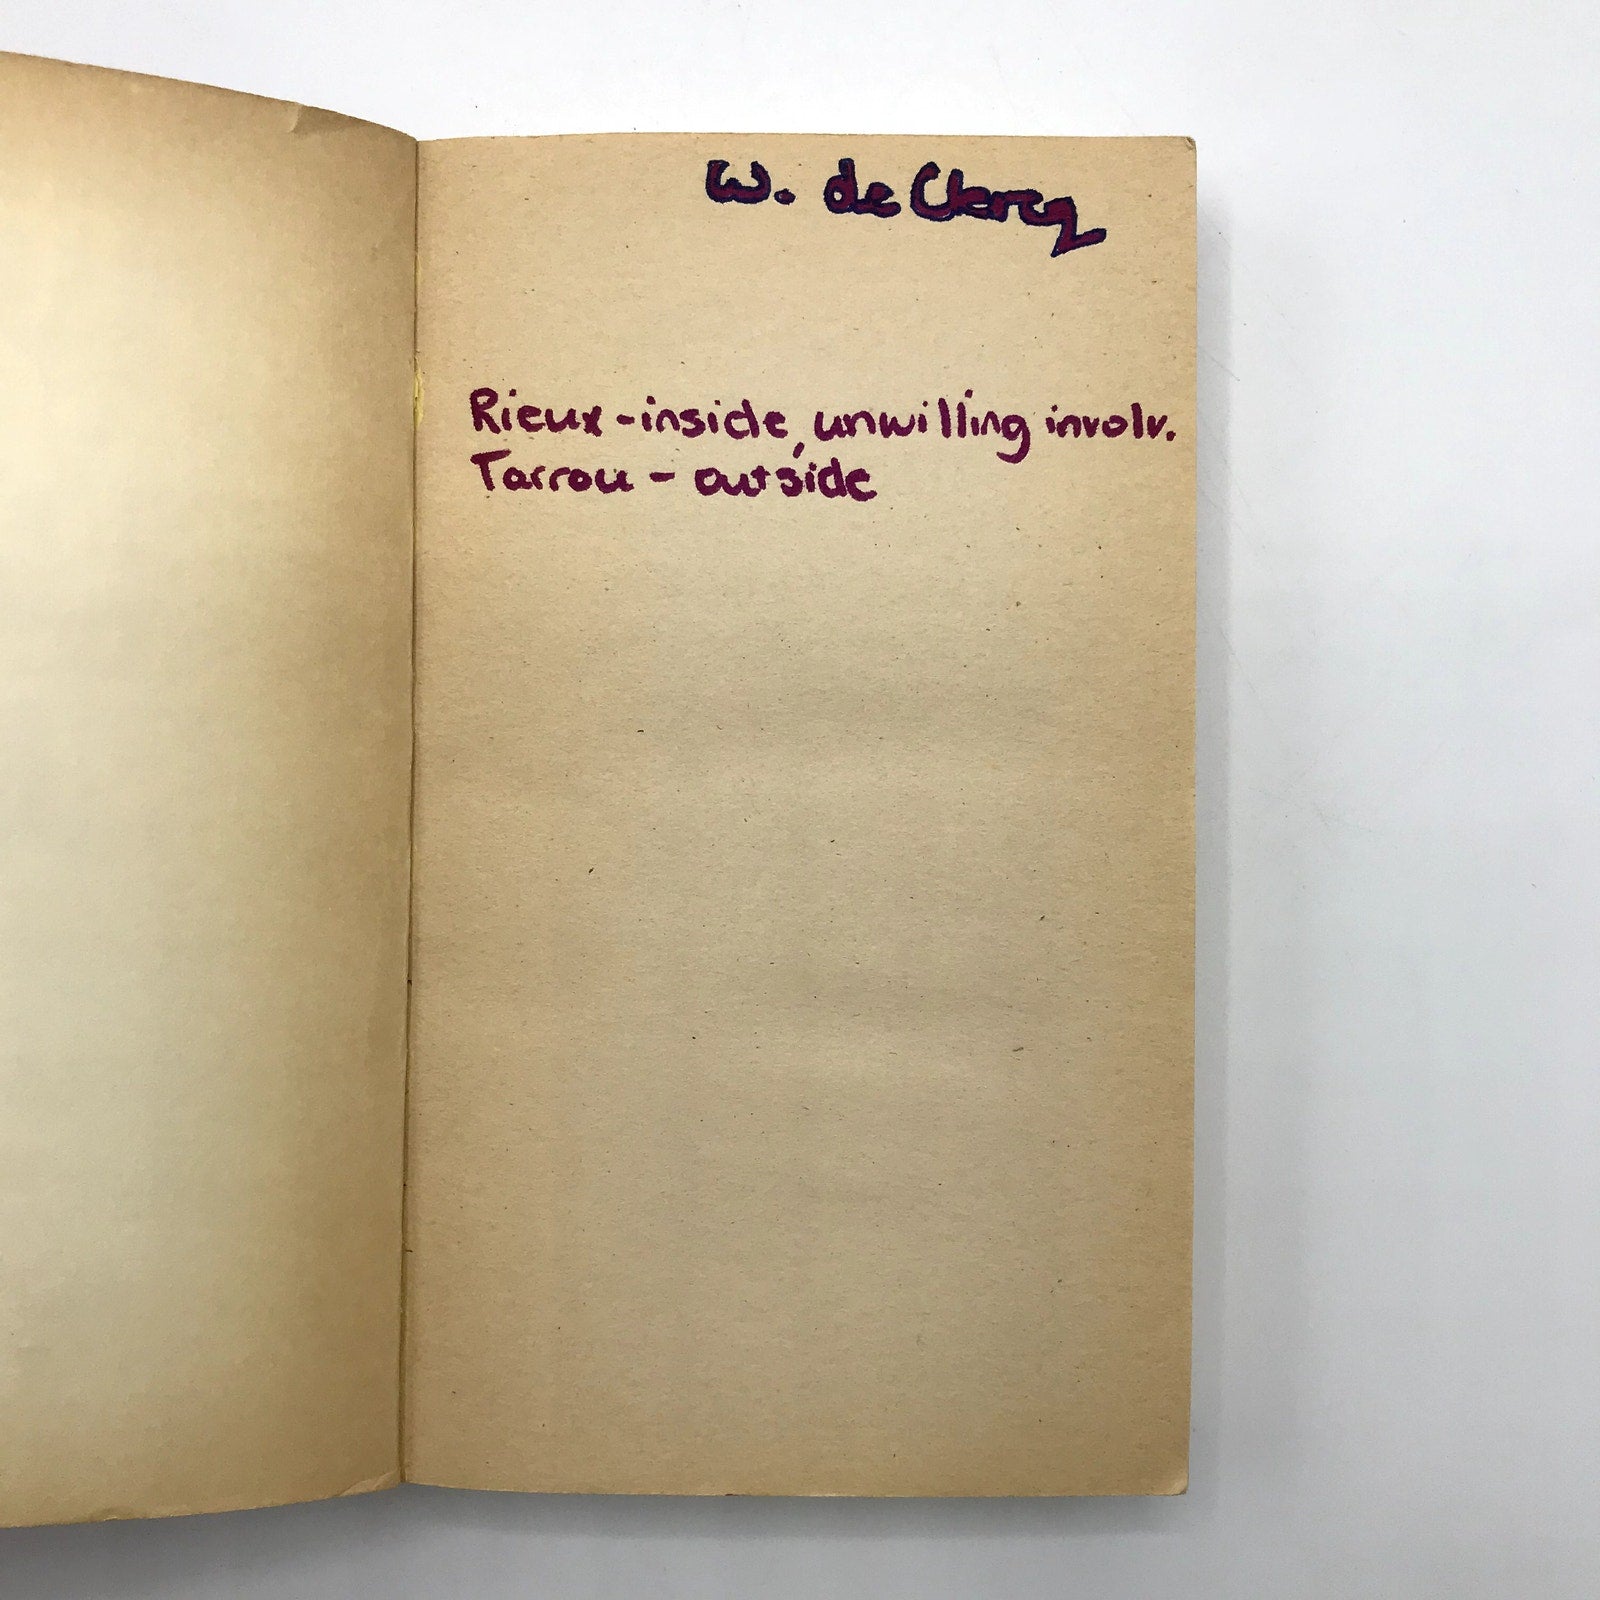 W. de Clercq
Rieux - inside, unwilling involv.
Tarrou - outside